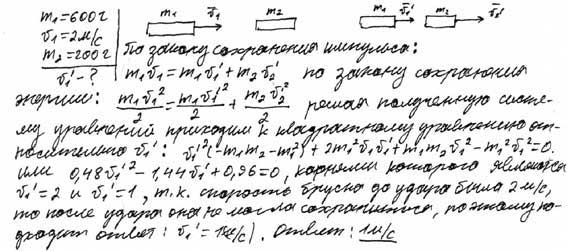 m₁=600г m₁ v̄₁ m₂ m₁ v̄₁' m₂ v̄₂'
v₁=2м/с
m₂=200г По закону сохранения импульса:
v₁' - ? m₁v₁=m₁v₁'+m₂v₂' по закону сохранения
энергии: m₁v₁²/2=m₁v₁'²/2+m₂v₂'²/2 решая полученную систе-
му уравнений приходим к квадратному уравнению от-
носительно v₁': v₁'²(-m₁m₂-m₁²)+2m₁²v₁v₁'+m₁m₂v₁²-m₁²v₁²=0.
или 0,48v₁'²-1,44v₁'+0,96=0, корнями которого являются
v₁'=2 и v₁'=1, т.к. скорость бруска до удара была 2м/с,
то после удара она не могла сохраниться, поэтому по-
дходит ответ: v₁'=1(м/с). Ответ: 1м/с